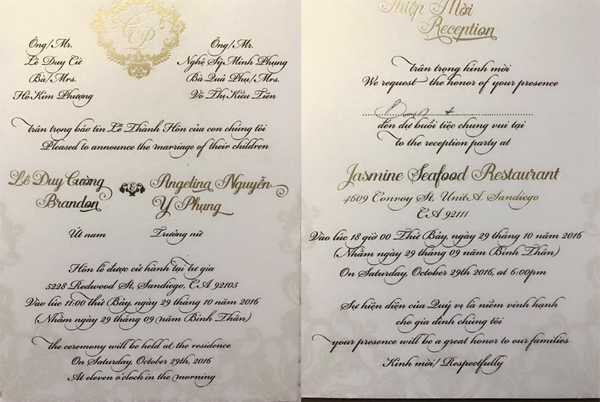 CP
Ông/Mr.
Lê Duy Cừ
Bà/Mrs.
Hồ Kim Phượng
Ông/Mr.
Nghệ Sỹ Minh Phụng
Bà Quả Phụ/Mrs.
Võ Thị Kiều Tiên
trân trọng báo tin Lễ Thành Hôn của con chúng tôi
Pleased to announce the marriage of their children
Lê Duy Cường
Brandon
&
Angelina Nguyễn
Y Phụng
Út nam
Trưởng nữ
Hôn lễ được cử hành tại tư gia
5228 Redwood St, Sandiego, CA 92105
Vào lúc 11:00 thứ Bảy, ngày 29 tháng 10 năm 2016
(Nhằm ngày 29 tháng 09 năm Bính Thân)
the ceremony will be held at the residence
On Saturday, October 29th, 2016
At eleven o'clock in the morning
Thiệp Mời
Reception
trân trọng kính mời
We request the honor of your presence
đến dự buổi tiệc chung vui tại
to the reception party at
Jasmine Seafood Restaurant
4609 Convoy St. Unit A Sandiego
CA 92111
Vào lúc 18 giờ 00 Thứ Bảy, ngày 29 tháng 10 năm 2016
(Nhằm ngày 29 tháng 09 năm Bính Thân)
On Saturday, October 29th 2016, at 6:00pm
Sự hiện diện của Quý vị là niềm vinh hạnh
cho gia đình chúng tôi
your presence will be a great honor to our families
Kính mời/Respectfully